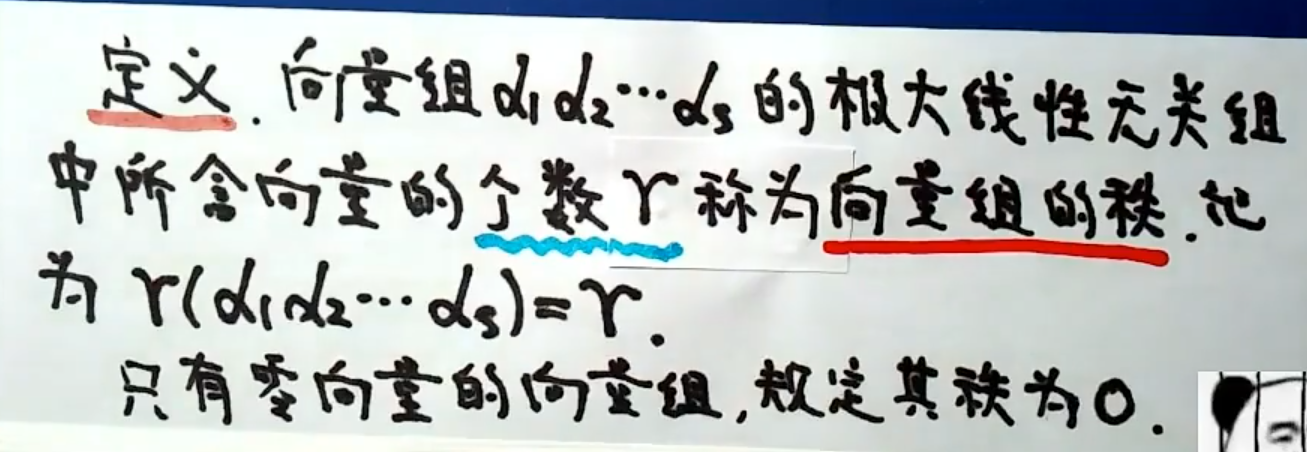 定义. 向量组α₁α₂⋯αₛ的极大线性无关组
中所含向量的个数r称为向量组的秩. 记
为 r(α₁α₂⋯αₛ)=r.
只有零向量的向量组,规定其秩为0.